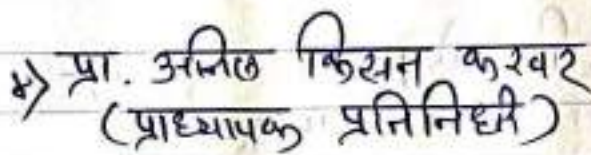 ४) प्रा. अनिल किसन करवर
(प्राध्यापक प्रतिनिधी)